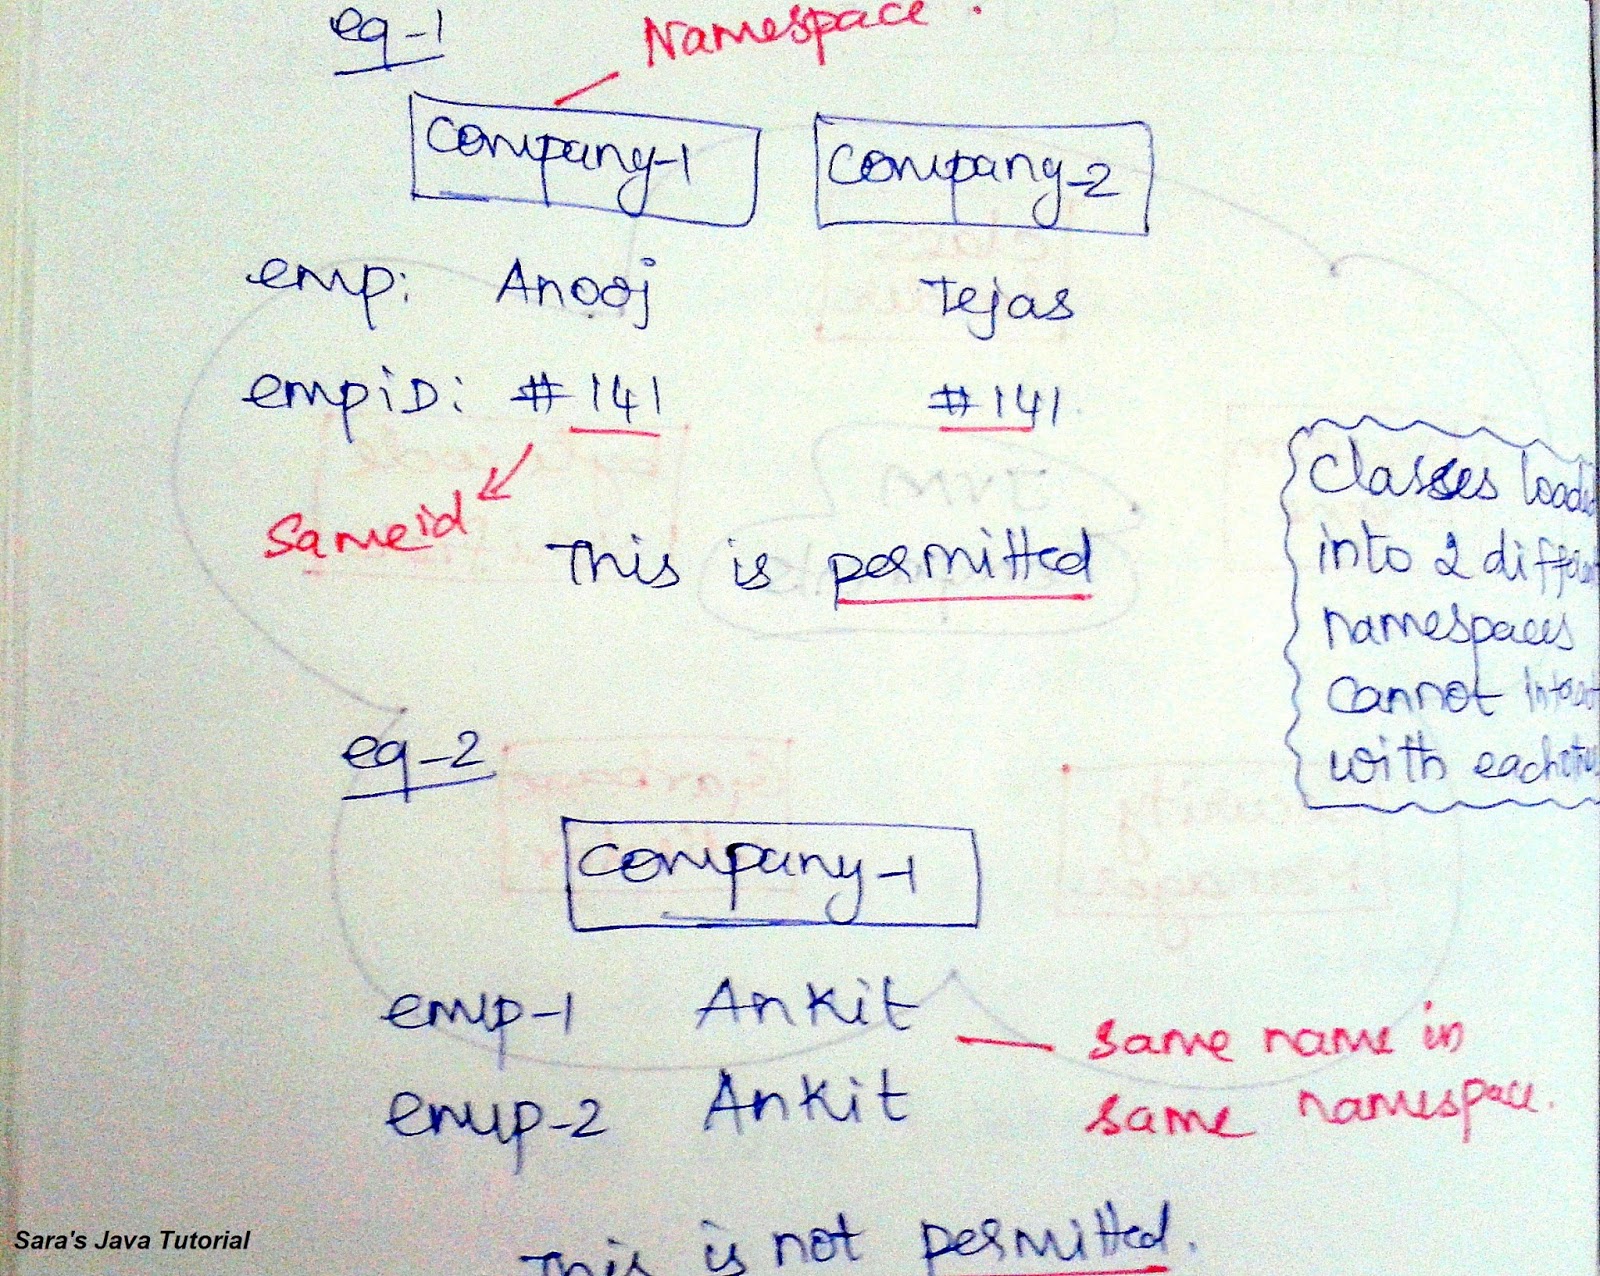 eg-1
Namespace.
company-1 company-2
emp: Anooj Tejas
empiD: #141 #141
Same id
This is permitted
classes
into 2
namespaces
cannot
with
eg-2
company-1
emp-1 Ankit
emp-2 Ankit
same name in
same namespace.
This is not permitted.
Sara's Java Tutorial